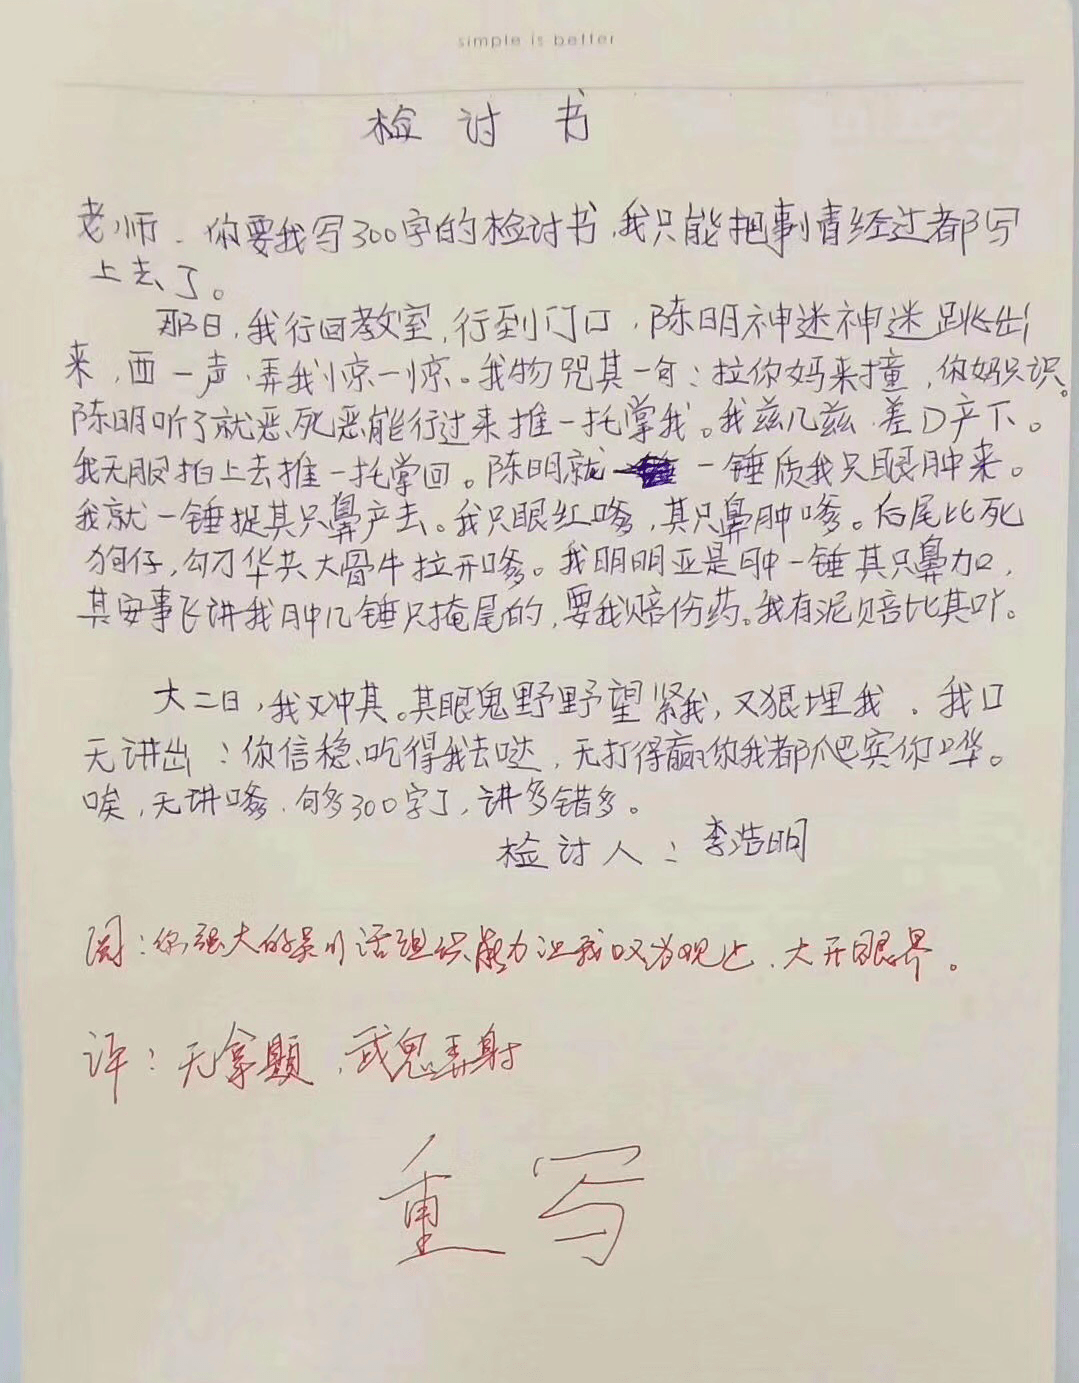 simple is better
检 讨 书
老师、你要我写300字的检讨书,我只能把事情经过都写
上去了。
那日,我行回教室,行到门口,陈明神迷神迷跳出
来,西一声,弄我惊一惊。我物咒其一句:拉你妈来撞,你妈只识。
陈明听了就恶、死恶能行过来推一托掌我。我兹几兹,差D产下。
我无服拍上去推一托掌回。陈明就一锤质我只眼肿来。
我就一锤捉其只鼻产去。我只眼红嗲,其只鼻肿嗲。后尾比死
狗仔,勾刁华共大骨牛拉开嗲。我明明亚是肿一锤其只鼻力口,
其安事飞讲我肿几锤只掩尾的,要我赔份药。我有泥赔比其吖。
大二日,我又冲其。其眼鬼野野望紧我,又狠埋我。我口
无讲出:你信稳、吃得我去哒,无打得赢你我都爬宾你卫华。
唉,无讲嗲,句多300字了,讲多错多。
检讨人:李浩明
阅:你强大的吴川话组织能力让我叹为观止、大开眼界。
评:无拿题,武鬼弄射
重写